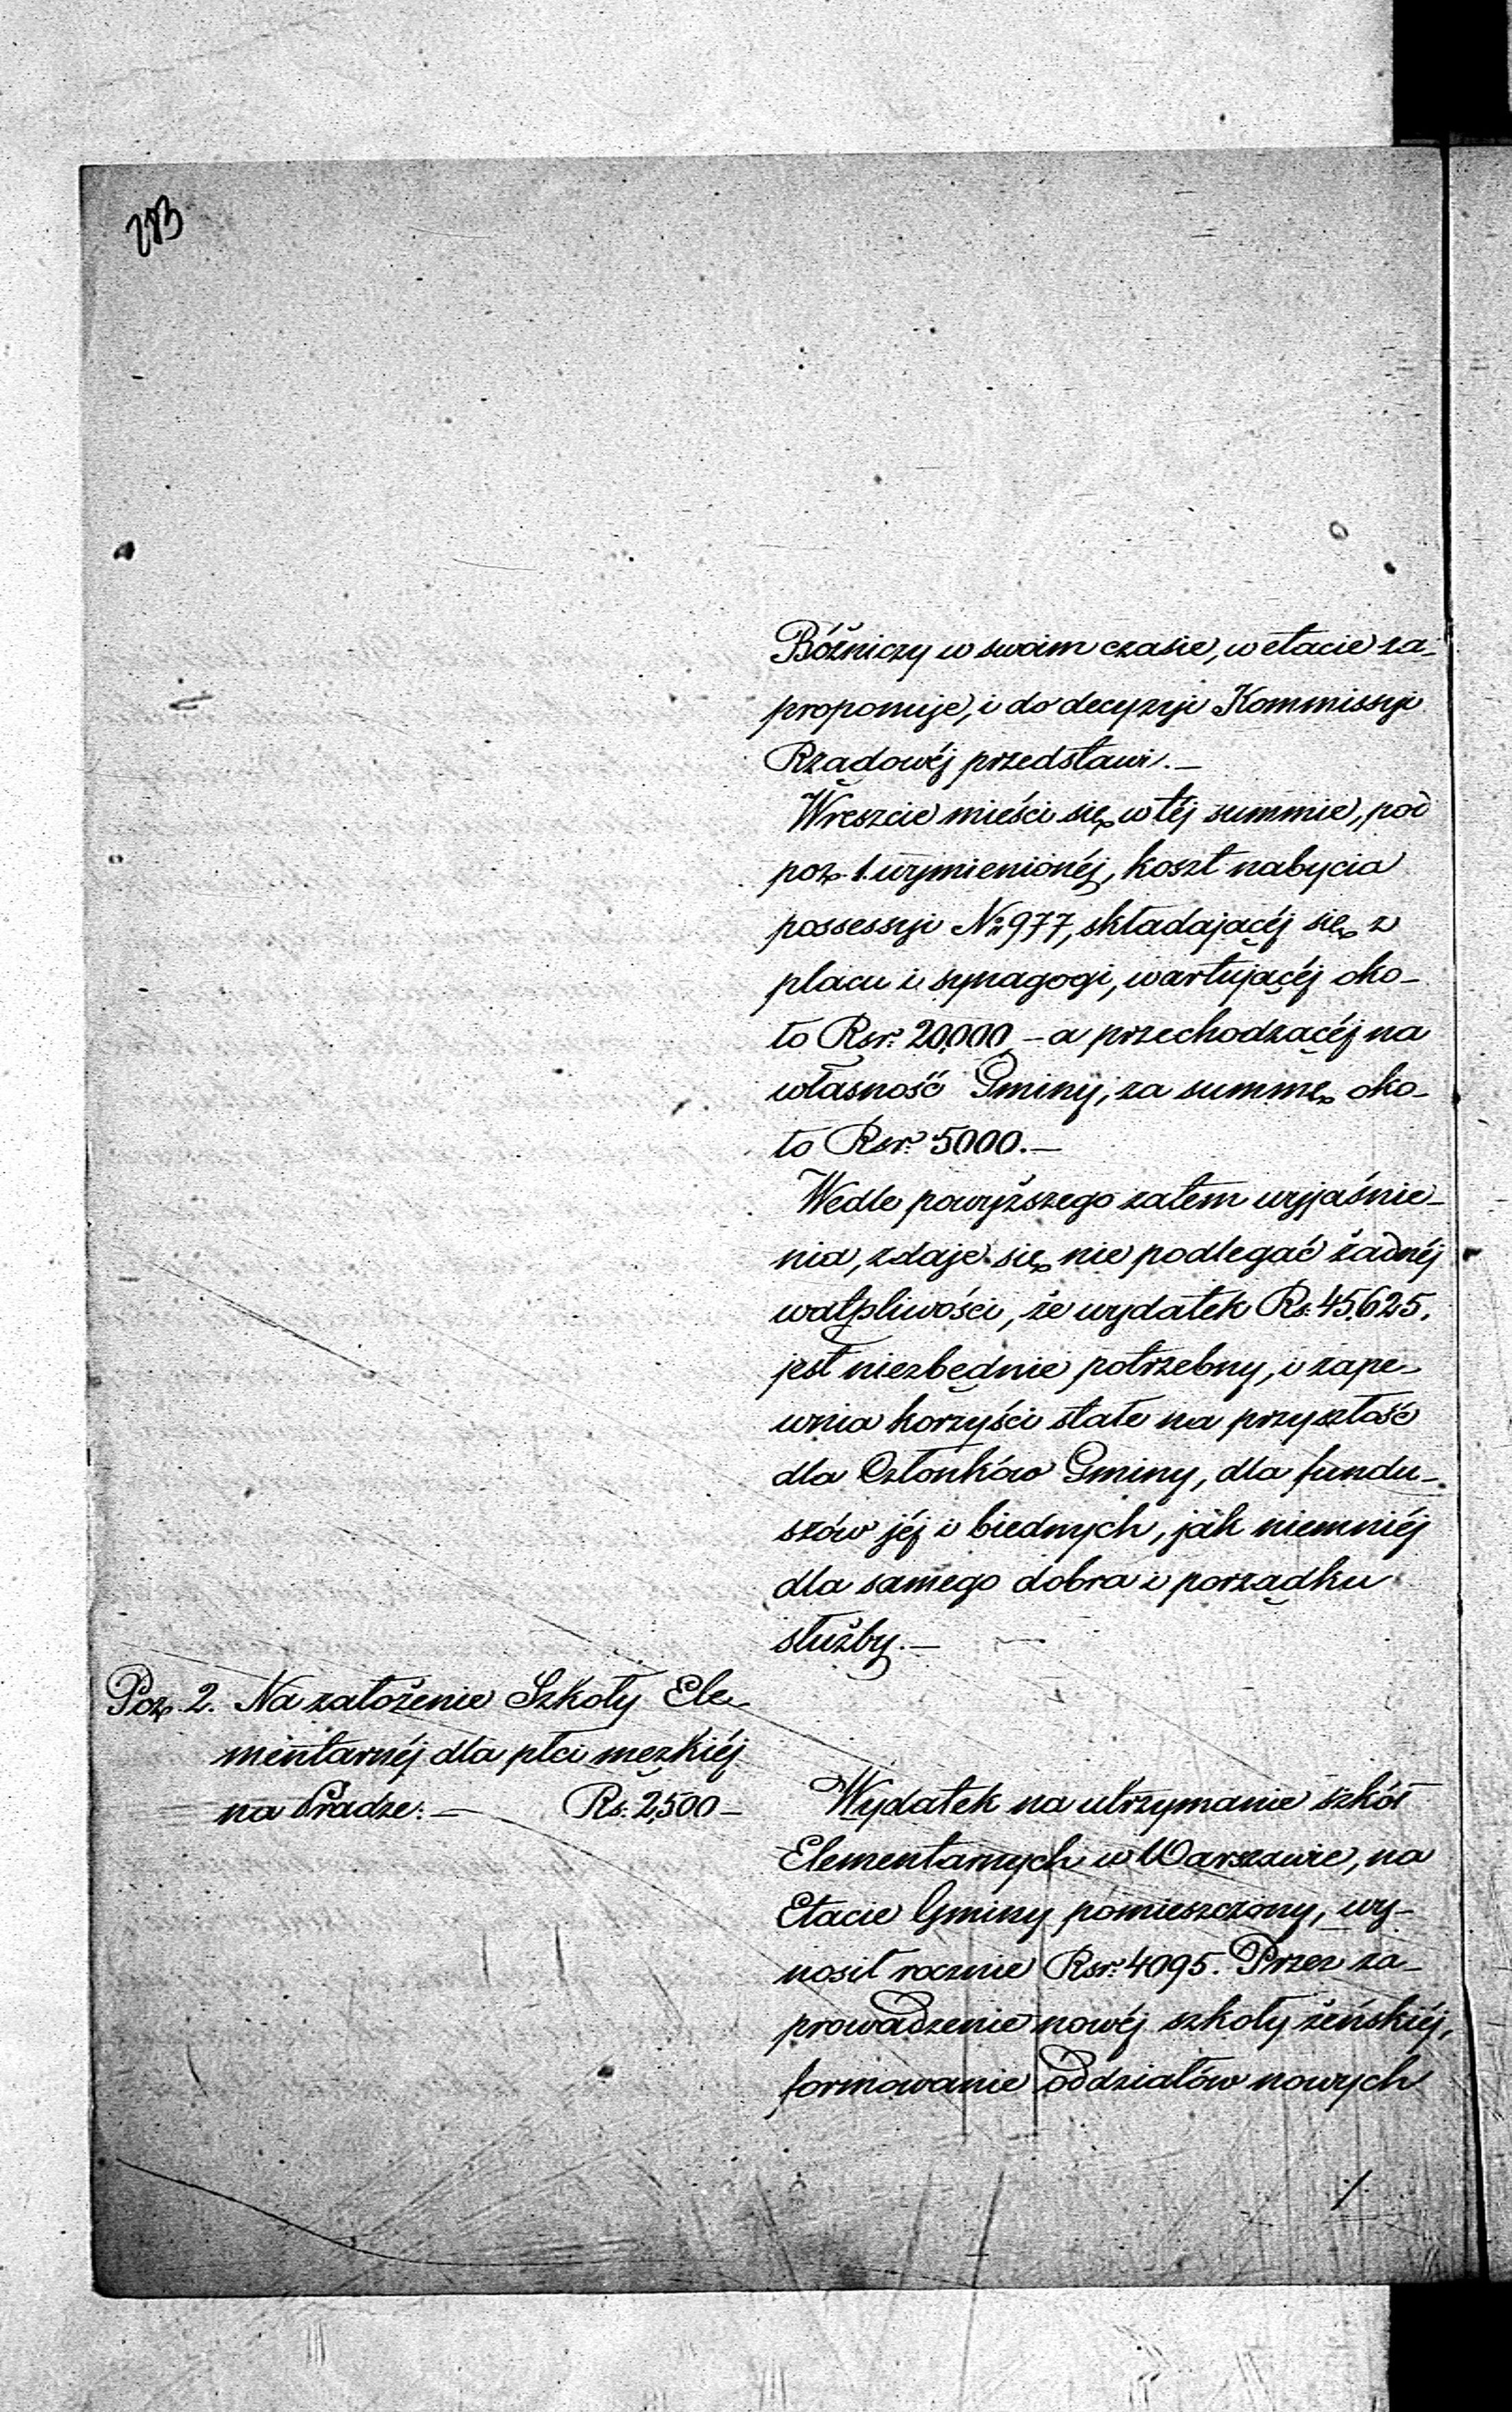 283
Bóźniczy w swoim czasie, w etacie za-
proponuje, i do decyzyi Kommissyi
Rządowéj przedstawi. —
Wreszcie mieści się w téj summie, pod
poz. 1. wymienionéj, koszt nabycia
possessyi № 977, składającéj się z
placu i synagogi, wartującéj oko-
ło Rsr. 20,000 — a przechodzącéj na
własność Gminy, za summę oko-
ło Rsr. 5000. —
Wedle powyższego zatem wyjaśnie-
nia, zdaje się nie podlegać żadnéj
wątpliwości, że wydatek Rs. 45,625.
jest niezbędnie potrzebny, i zape-
wnia korzyści stałe na przyszłość
dla Członków Gminy, dla fundu-
szów jéj i biednych, jak niemniéj
dla samego dobra i porządku
służby. —
Poz. 2. Na założenie Szkoły Ele-
mentarnéj dla płci mezkiéj
na Pradze. — Rs. 2,500 —
Wydatek na utrzymanie szkół
Elementarnych w Warszawie, na
Etacie Gminy pomieszczony, wy-
nosił rocznie Rsr. 4095. Przez za-
prowadzenie nowéj szkoły żeńskiéj,
formowanie oddziałów nowych
./.